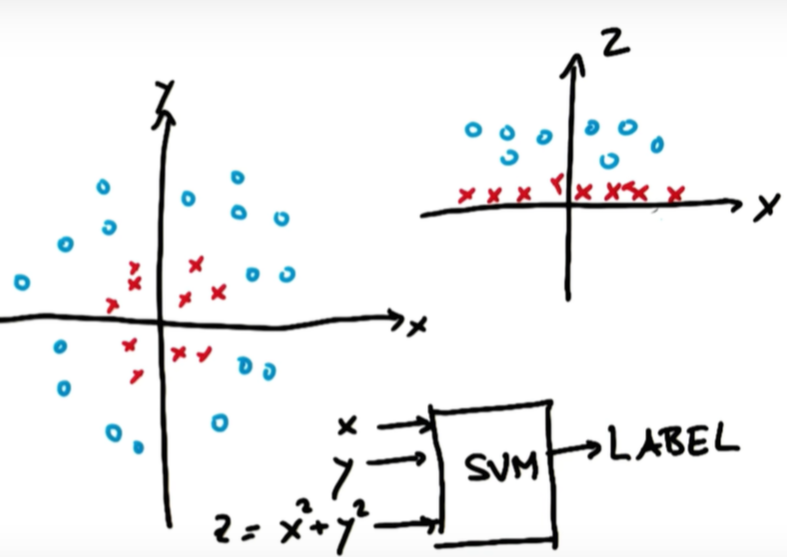 y
x
z
x
x
y
z = x²+y²
SVM
LABEL